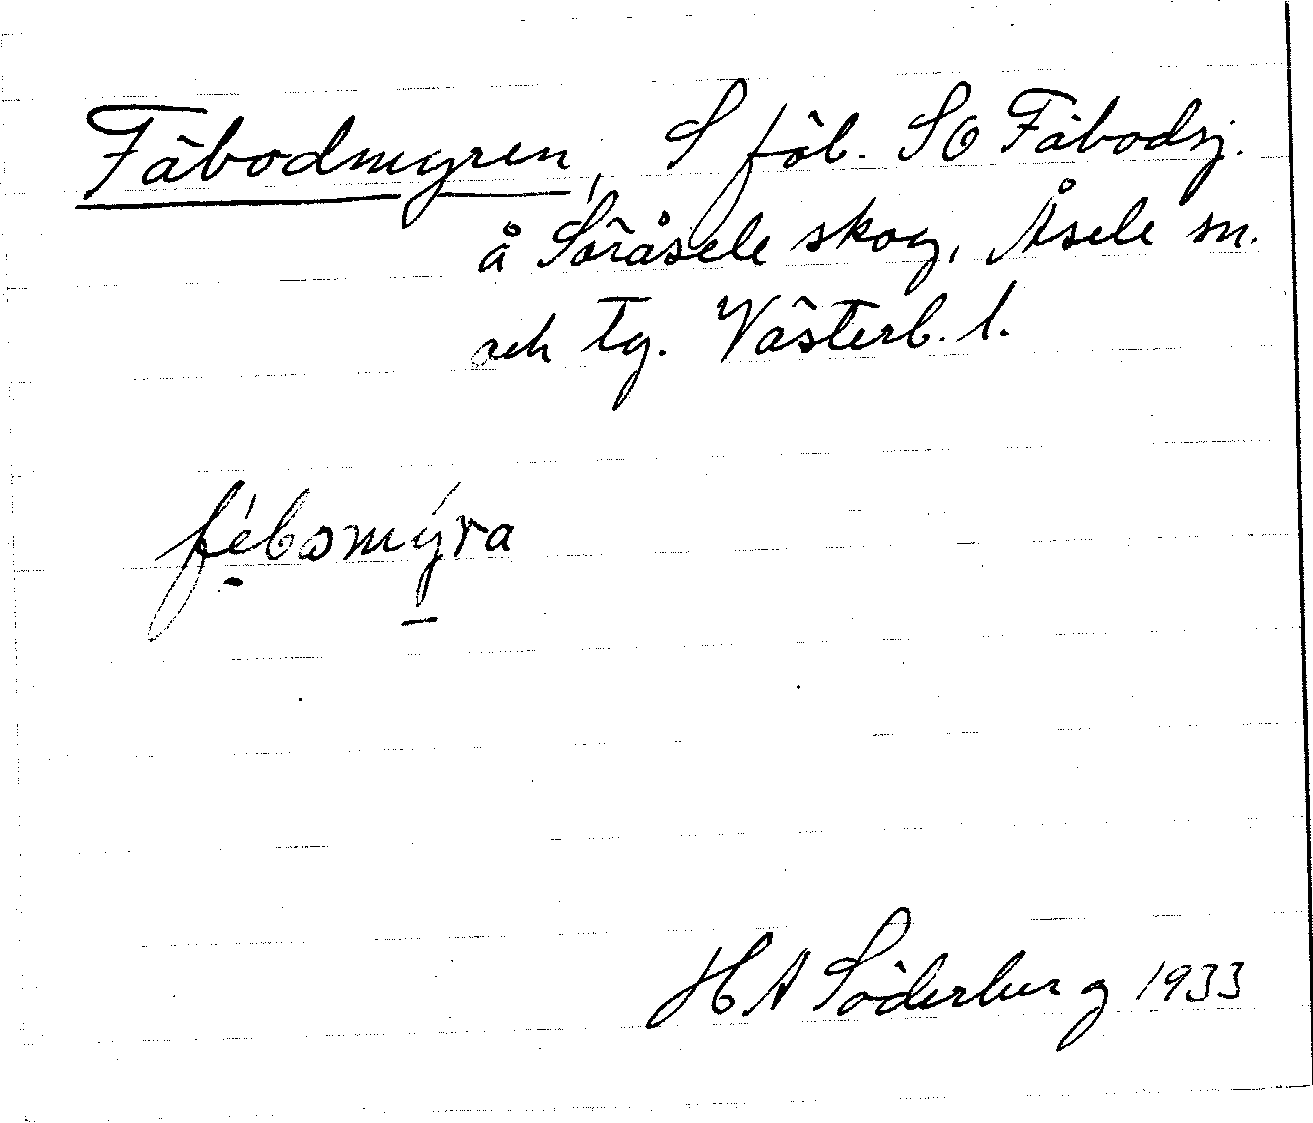 Fäbodmyren, S fäb. SO Fäbodsj.
å Söråsele skog, Åsele sn.
och tg. Västerb. l.
fébomýra
H A Söderberg 1933